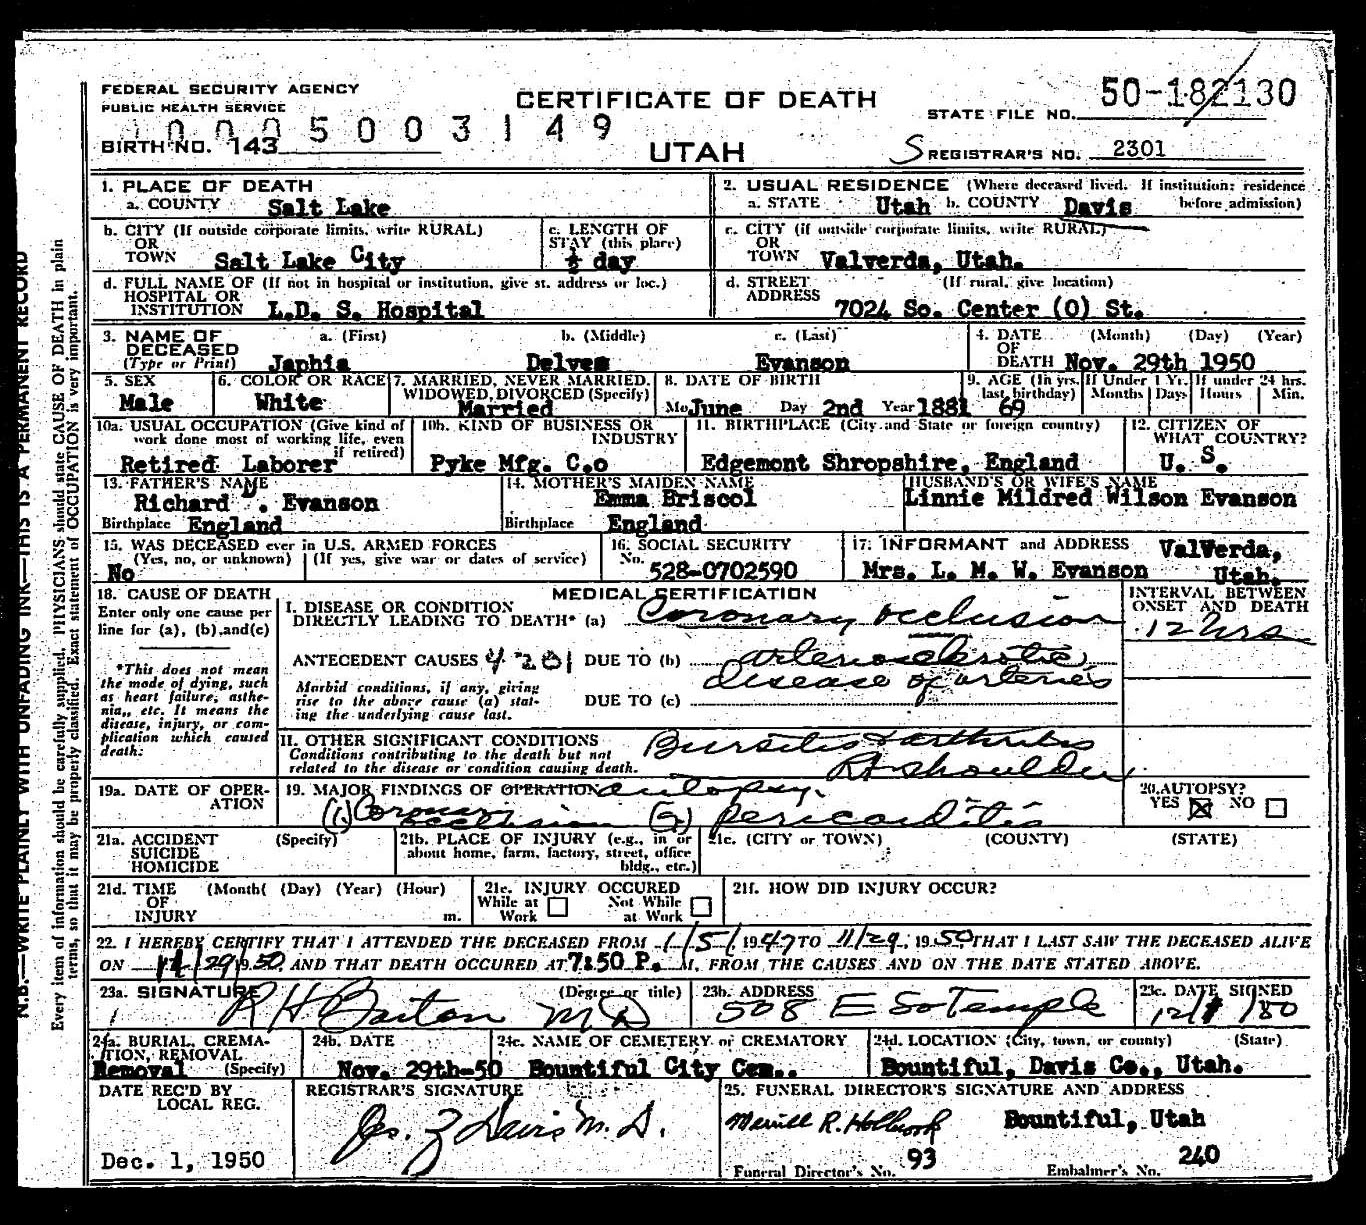 FEDERAL SECURITY AGENCY
PUBLIC HEALTH SERVICE
CERTIFICATE OF DEATH
STATE FILE NO. 50-182130
0005003149
BIRTH NO. 143
UTAH
REGISTRAR'S NO. 2301
1. PLACE OF DEATH
a. COUNTY Salt Lake
2. USUAL RESIDENCE (Where deceased lived. If institution: residence before admission)
a. STATE Utah b. COUNTY Davis
b. CITY (If outside corporate limits, write RURAL)
OR
TOWN Salt Lake City
c. LENGTH OF
STAY (this place)
½ day
c. CITY (if outside corporate limits, write RURAL)
OR
TOWN Valverda, Utah.
d. FULL NAME OF (If not in hospital or institution, give st. address or loc.)
HOSPITAL OR
INSTITUTION L.D. S. Hospital
d. STREET (If rural, give location)
ADDRESS 7024 So. Center (O) St.
3. NAME OF DECEASED
(Type or Print)
a. (First) b. (Middle) c. (Last)
Japhia Delves Evanson
4. DATE OF DEATH (Month) (Day) (Year)
Nov. 29th 1950
5. SEX
Male
6. COLOR OR RACE
White
7. MARRIED, NEVER MARRIED, WIDOWED, DIVORCED (Specify)
Married
8. DATE OF BIRTH
Mo June Day 2nd Year 1881
9. AGE (In yrs. last birthday)
69
If Under 1 Yr. Months Days
If under 24 hrs. Hours Min.
10a. USUAL OCCUPATION (Give kind of work done most of working life, even if retired)
Retired Laborer
10b. KIND OF BUSINESS OR INDUSTRY
Pyke Mfg. C.o
11. BIRTHPLACE (City and State or foreign country)
Edgemont Shropshire, England
12. CITIZEN OF WHAT COUNTRY?
U. S.
13. FATHER'S NAME
Richard D. Evanson
Birthplace England
14. MOTHER'S MAIDEN NAME
Emma Briscol
Birthplace England
HUSBAND'S OR WIFE'S NAME
Linnie Mildred Wilson Evanson
15. WAS DECEASED ever in U.S. ARMED FORCES
(Yes, no, or unknown) (If yes, give war or dates of service)
No
16. SOCIAL SECURITY
No. 528-0702590
17. INFORMANT and ADDRESS ValVerda,
Mrs. L. M. W. Evanson Utah.
18. CAUSE OF DEATH
Enter only one cause per line for (a), (b), and (c)
*This does not mean the mode of dying, such as heart failure, asthenia, etc. It means the disease, injury, or complication which caused death:
MEDICAL CERTIFICATION
INTERVAL BETWEEN ONSET AND DEATH
I. DISEASE OR CONDITION
DIRECTLY LEADING TO DEATH* (a) Coronary occlusion
12 hrs
ANTECEDENT CAUSES 4201 DUE TO (b) arteriosclerotic
disease of arteries
Morbid conditions, if any, giving rise to the above cause (a) stating the underlying cause last.
DUE TO (c)
II. OTHER SIGNIFICANT CONDITIONS
Conditions contributing to the death but not related to the disease or condition causing death.
Bursitis & arthritis
Rt shoulder
19a. DATE OF OPERATION
19. MAJOR FINDINGS OF OPERATION autopsy.
(1) Coronary occlusion (2) pericarditis
20. AUTOPSY?
YES ☒ NO ☐
21a. ACCIDENT (Specify)
SUICIDE
HOMICIDE
21b. PLACE OF INJURY (e.g., in or about home, farm, factory, street, office bldg., etc.)
21c. (CITY or TOWN) (COUNTY) (STATE)
21d. TIME OF INJURY (Month( (Day) (Year) (Hour)
m.
21e. INJURY OCCURED
While at Work ☐ Not While at Work ☐
21f. HOW DID INJURY OCCUR?
22. I HEREBY CERTIFY THAT I ATTENDED THE DECEASED FROM 1/5/ 1947 TO 11/29, 1950 THAT I LAST SAW THE DECEASED ALIVE
ON 11/29 1950 AND THAT DEATH OCCURED AT 7:50 P. M, FROM THE CAUSES AND ON THE DATE STATED ABOVE.
23a. SIGNATURE (Degree or title)
R H Barton M D
23b. ADDRESS
508 E So Temple
23c. DATE SIGNED
12/1/50
24a. BURIAL, CREMATION, REMOVAL (Specify)
Removal
24b. DATE
Nov. 29th-50
24c. NAME OF CEMETERY or CREMATORY
Bountiful City Cem..
24d. LOCATION (City, town, or county) (State)
Bountiful, Davis Co., Utah.
DATE REC'D BY LOCAL REG.
Dec. 1, 1950
REGISTRAR'S SIGNATURE
Jos. Z Davis M. D.
25. FUNERAL DIRECTOR'S SIGNATURE AND ADDRESS
Merrill R. Holbrook Bountiful, Utah
Funeral Director's No. 93 Embalmer's No. 240
N.B.—WRITE PLAINLY WITH UNFADING INK—THIS IS A PERMANENT RECORD
Every item of information should be carefully supplied. PHYSICIANS should state CAUSE OF DEATH in plain
terms, so that it may be properly classified. Exact statement of OCCUPATION is very important.